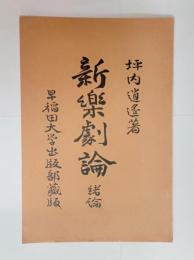 坪内逍遙著
新樂劇論
緒論
早稲田大学出版部藏版